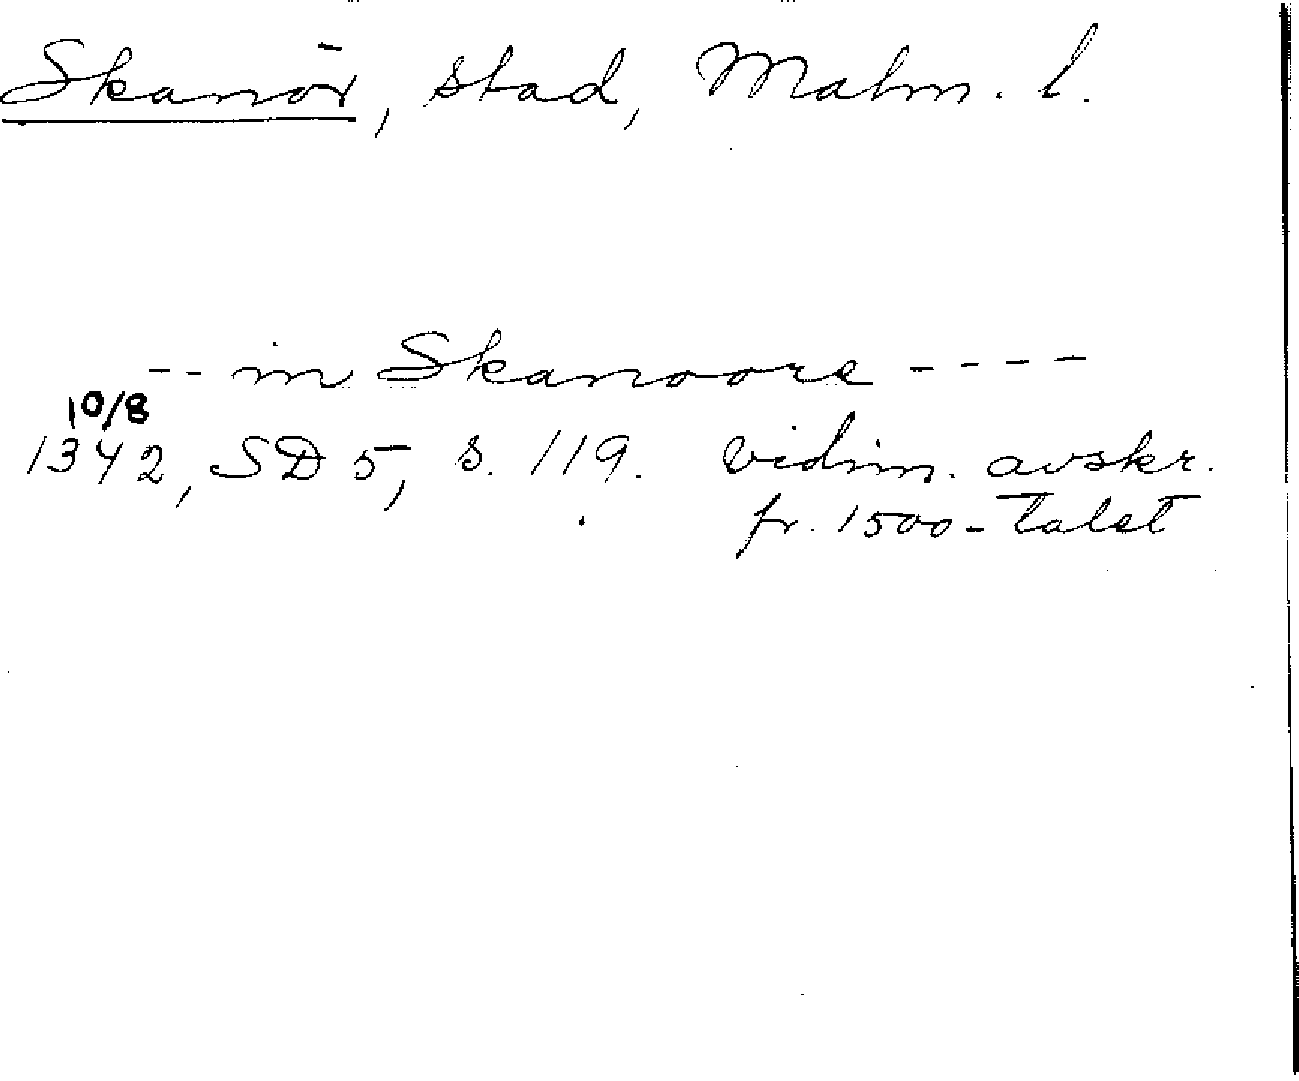 Skanör, stad, Malm. l.
-- in Skanoore ----
10/8
1342, SD 5, s. 119. vidim. avskr.
fr. 1500-talet